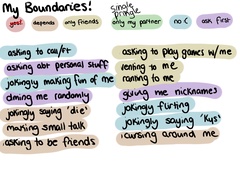 My Boundaries!
single pringle
yes! depends only friends only my partner no :( ask first
asking to call/ft
asking abt personal stuff
jokingly making fun of me
dming me randomly
jokingly saying 'die'
making small talk
asking to be friends
asking to play games w/me
venting to me
ranting to me
giving me nicknames
jokingly flirting
jokingly saying 'kys'
cursing around me